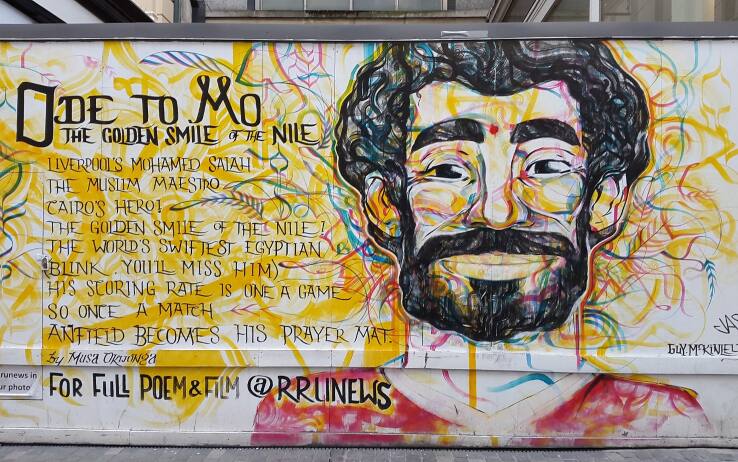 ODE TO MO
THE GOLDEN SMILE OF THE NILE
LIVERPOOL'S MOHAMED SALAH
THE MUSLIM MAESTRO
CAIRO'S HERO!
THE GOLDEN SMILE OF THE NILE!
THE WORLD'S SWIFTEST EGYPTIAN
(BLINK. YOU'LL MISS HIM)
HIS SCORING RATE IS ONE A GAME
SO ONCE A MATCH
ANFIELD BECOMES HIS PRAYER MAT.
by MUSA OKWONGA
FOR FULL POEM & FILM @RRUNEWS
runews in
ur photo
GUY.MCKINLEY